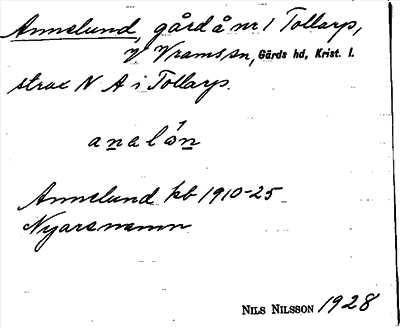 Annelund, gård å nr 1 Tollarp,
V Vramssn, Gärds hd, Krist. l.
strax N A i Tollarp.
analö́n
Annelund kb 1910-25
Nyare namn
NILS NILSSON 1928